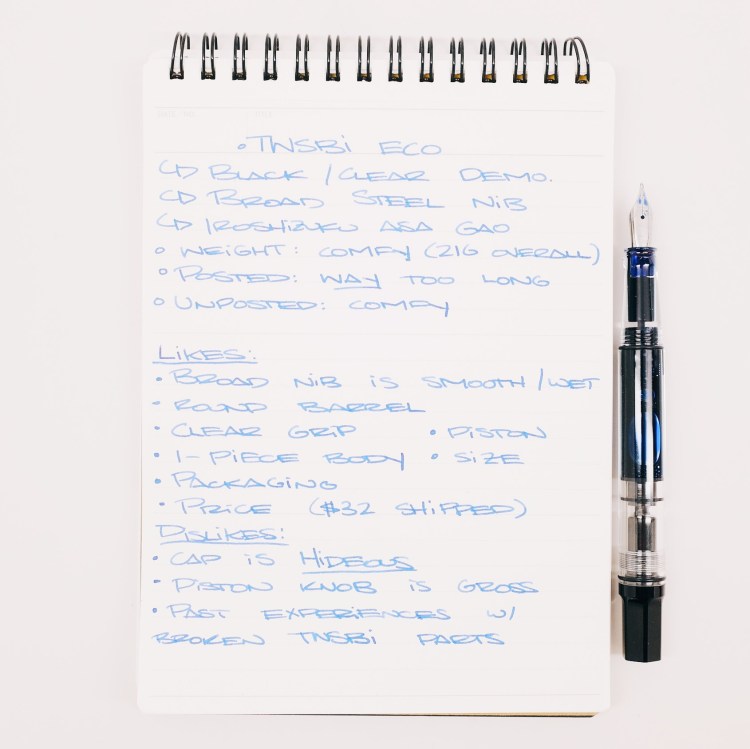 • TWSBi ECO
↳ BLACK / CLEAR DEMO.
↳ BROAD STEEL NiB
↳ IROSHIZUKU ASA GAO
○ WEiGHT: COMFY (21G OVERALL)
○ POSTED: WAY TOO LONG
○ UNPOSTED: COMFY
LiKES:
• BROAD NiB iS SMOOTH/WET
• ROUND BARREL
• CLEAR GRiP • PiSTON
• 1-PiECE BODY • SiZE
• PACKAGiNG
• PRiCE ($32 SHiPPED)
DiSLiKES:
• CAP iS HiDEOUS
• PiSTON KNOB iS GROSS
• PAST EXPERiENCES W/
BROKEN TWSBi PARTS